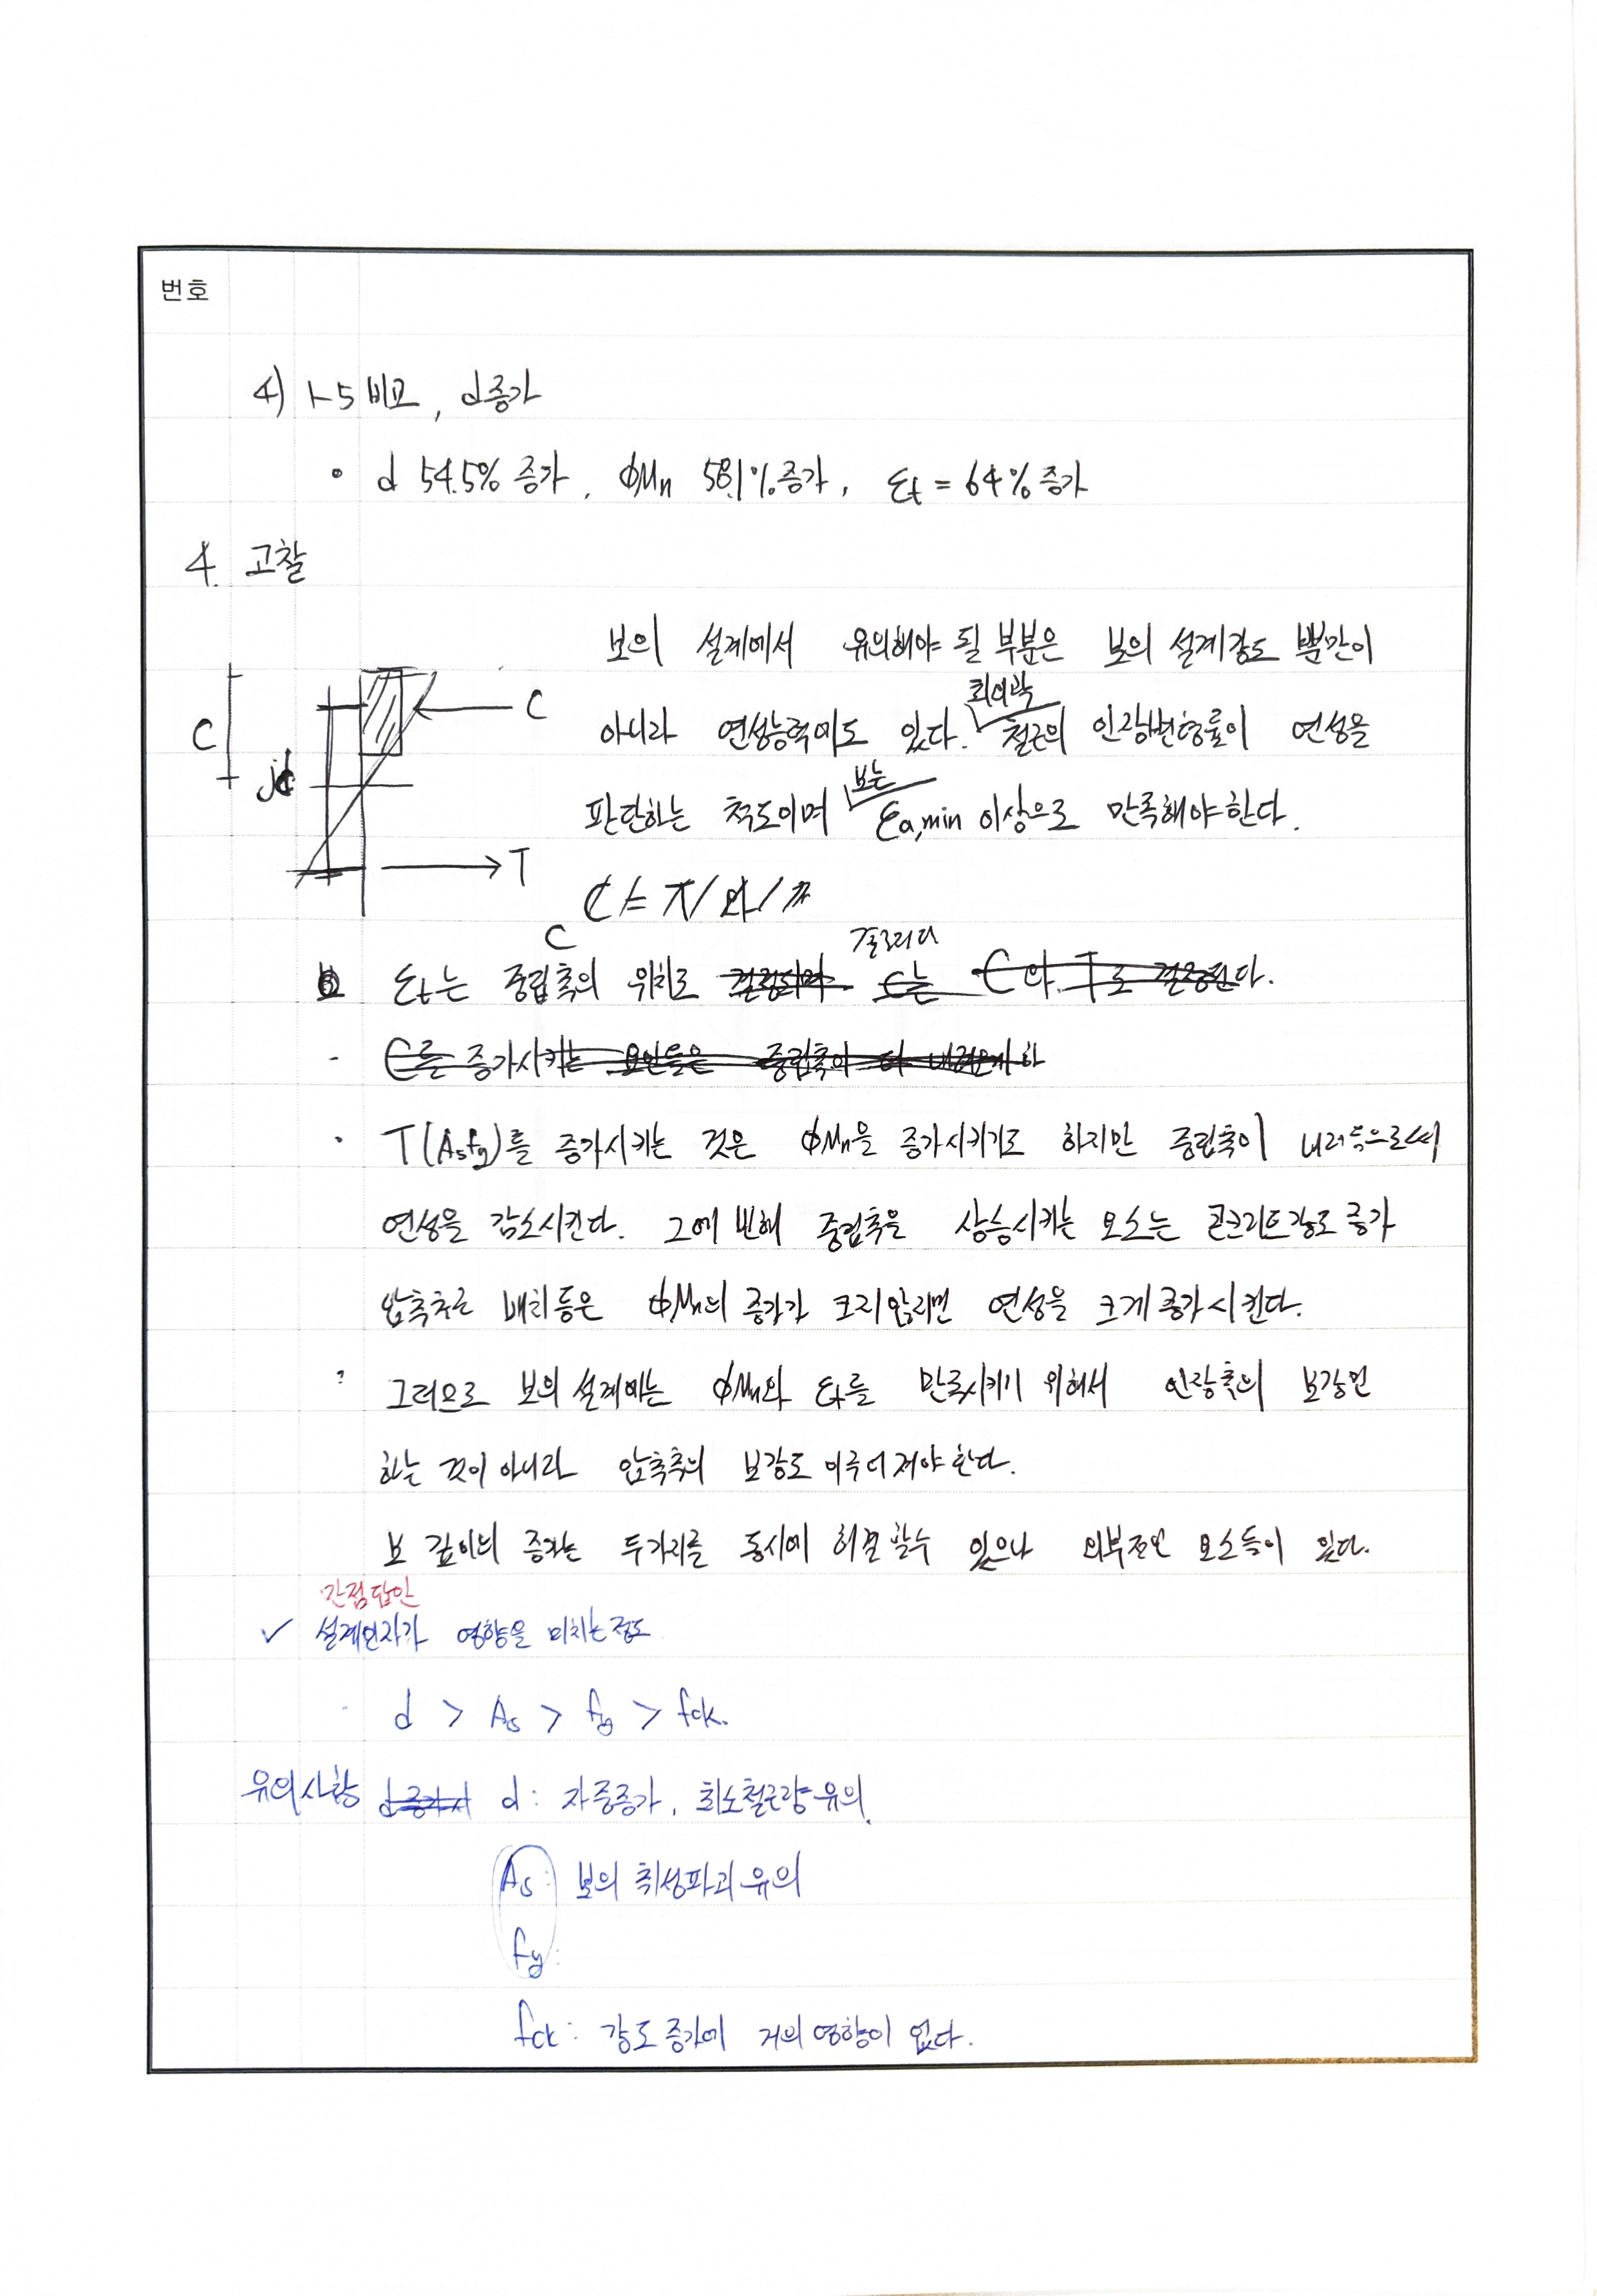 번호
4) 1-5 비교, d증가
• d 54.5% 증가, ϕMn 58.1% 증가, εt = 64% 증가
4. 고찰
보의 설계에서 유의해야 될 부분은 보의 설계강도 뿐만이
최외곽
아니라 연성능력에도 있다. 철근의 인장변형률이 연성을
보는
판단하는 척도이며 εa,min 이상으로 만족해야한다.
C
C
jd
T
C = T
C
결정된다
εt는 중립축의 위치로 결정되며 C는 C와 T로 결정된다.
- C를 증가시키는 요인들은 중립축이 더 내려오게 하
· T(Asfy)를 증가시키는 것은 ϕMn을 증가시키기도 하지만 중립축이 내려
연성을 감소시킨다. 그에 반해 중립축을 상승시키는 요소는 콘크리트강도 증가
압축철근 배치등은 ϕMn의 증가가 크지않지만 연성을 크게 증가시킨다.
· 그러므로 보의 설계에는 ϕMn와 εt를 만족시키기 위해서 인장측의 보강만
하는 것이 아니라 압축측의 보강도 이루어져야 한다.
보 깊이의 증가는 두가지를 동시에 해결할수 있으나 외부적인 요소들이 있다.
관점 답안
✓ 설계인자가 영향을 미치는 정도
· d > As > fy > fck.
유의사항 d 증가시 d : 자중증가, 최소철근량 유의.
As : 보의 취성파괴 유의
fy :
fck : 강도 증가에 거의 영향이 없다.